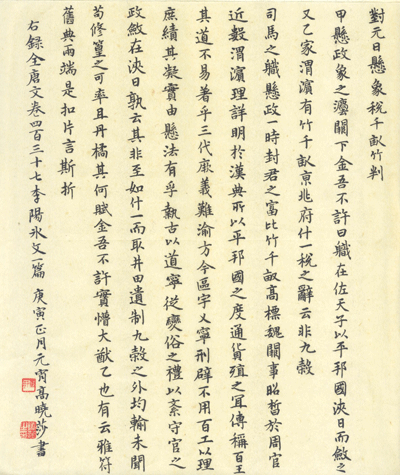 對元日懸象稅千畝竹判
甲懸政象之灋闕下金吾不許曰職在佐天子以平邦國浹日而斂之
又乙家渭濱有竹千畝京兆府什一稅之辭云非九穀
司馬之職懸政一時封君之富比竹千畝高標魏闕事昭晳於周官
近渭濱理詳明於漢典所以平邦國之度通貨殖之宜傳稱百王
其道不易著乎三代厥義難渝方今區宇乂寧刑辟不用百工以理
庶績其凝實由懸法有孚執古以道寧從變俗之禮以紊守官之
政斂在浹日孰云其非至如什一而取井田遺制九穀之外均輸未聞
苟修篁之可率且丹橘其何賦金吾不許實懵大猷乙也有云雅符
舊典兩端是扣片言斯折
右錄全唐文卷四百三十七李陽冰文一篇 庚寅正月元宵高曉莎書